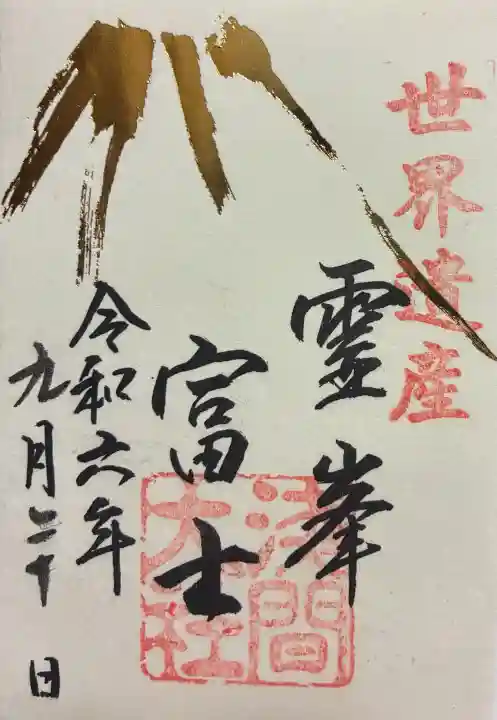 世界遺産
靈峯
富士
浅間大社
令和六年
九月二十日